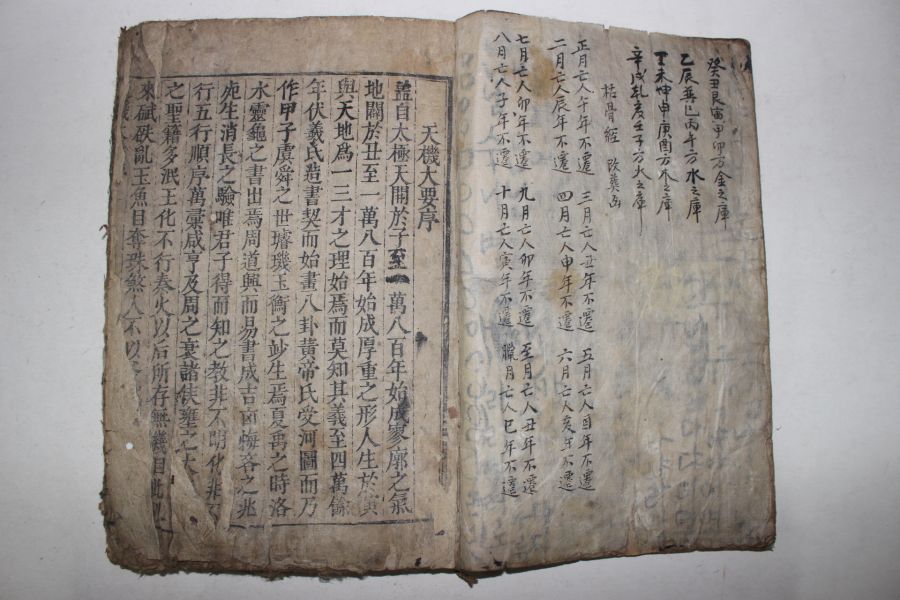 癸丑艮寅甲卯方金之庫
乙辰巽巳丙午方水之庫
丁未坤申庚酉方木之庫
辛戌乾亥壬子方火之庫
枯骨經 改葬凶
正月亡人午年不遷 三月亡人丑年不遷 五月亡人酉年不遷
二月亡人辰年不遷 四月亡人申年不遷 六月亡人亥年不遷
七月亡人卯年不遷 九月亡人卯年不遷 至月亡人丑年不遷
八月亡人子年不遷 十月亡人寅年不遷 臘月亡人巳年不遷
天機大要序
蓋自太極天開於子至一萬八百年始成寥廓之氣
地闢於丑至一萬八百年始成厚重之形人生於寅
與天地爲一三才之理始焉而莫知其義至四萬餘
年伏羲氏造書契而始畫八卦黃帝氏受河圖而乃
作甲子虞舜之世璿璣玉衡之妙生焉夏禹之時洛
水靈龜之書出焉周道興而易書成吉凶悔吝之兆
死生消長之驗唯君子得而知之教非不明化非不
行五行順序萬彙咸亨及周之衰諸侯壅之大
之聖籍多泯王化不行秦火以后所存無幾自此
來砥砆亂玉魚目奪珠煞人不以